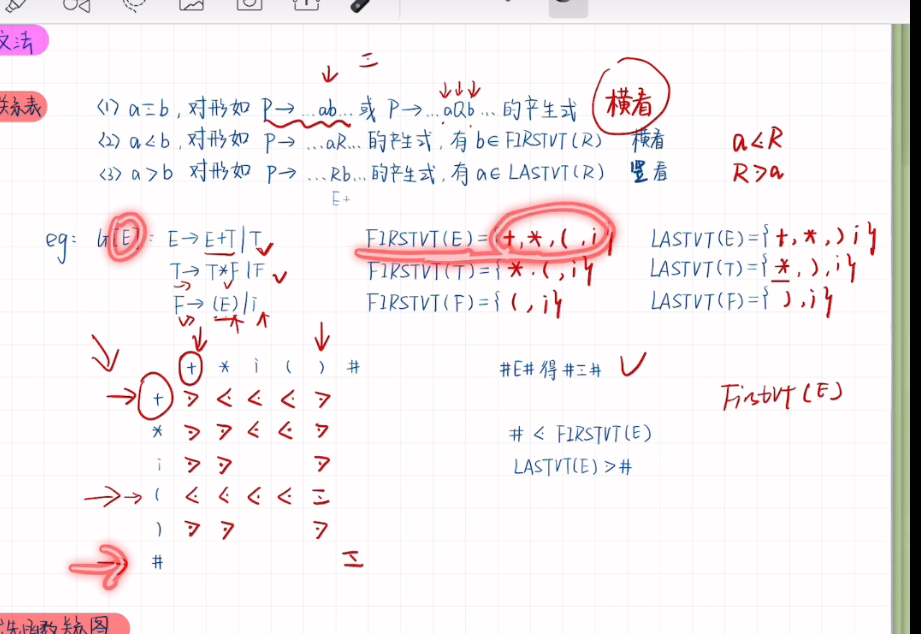 文法
关系表
(1) a≡b, 对形如 P→...ab... 或 P→...aQb... 的产生式 横看
(2) a⋖b, 对形如 P→ ...aR... 的产生式, 有 b∈FIRSTVT(R) 横看 a⋖R
(3) a⋗b 对形如 P→ ...Rb... 的产生式, 有 a∈LASTVT(R) 竖看 R⋗a
E+
eg: G[E]: E→E+T|T FIRSTVT(E)={+,*,(,i} LASTVT(E)={+,*,),i}
T→T*F|F FIRSTVT(T)={*,(,i} LASTVT(T)={*,),i}
F→(E)|i FIRSTVT(F)={(,i} LASTVT(F)={),i}
+ * i ( ) # #E# 得 #≡#
+ ⋗ ⋖ ⋖ ⋖ ⋗ FirstVT(E)
* ⋗ ⋗ ⋖ ⋖ ⋗ # < FIRSTVT(E)
i ⋗ ⋗ ⋗ LASTVT(E)>#
( ⋖ ⋖ ⋖ ⋖ ≡
) ⋗ ⋗ ⋗
# ≡